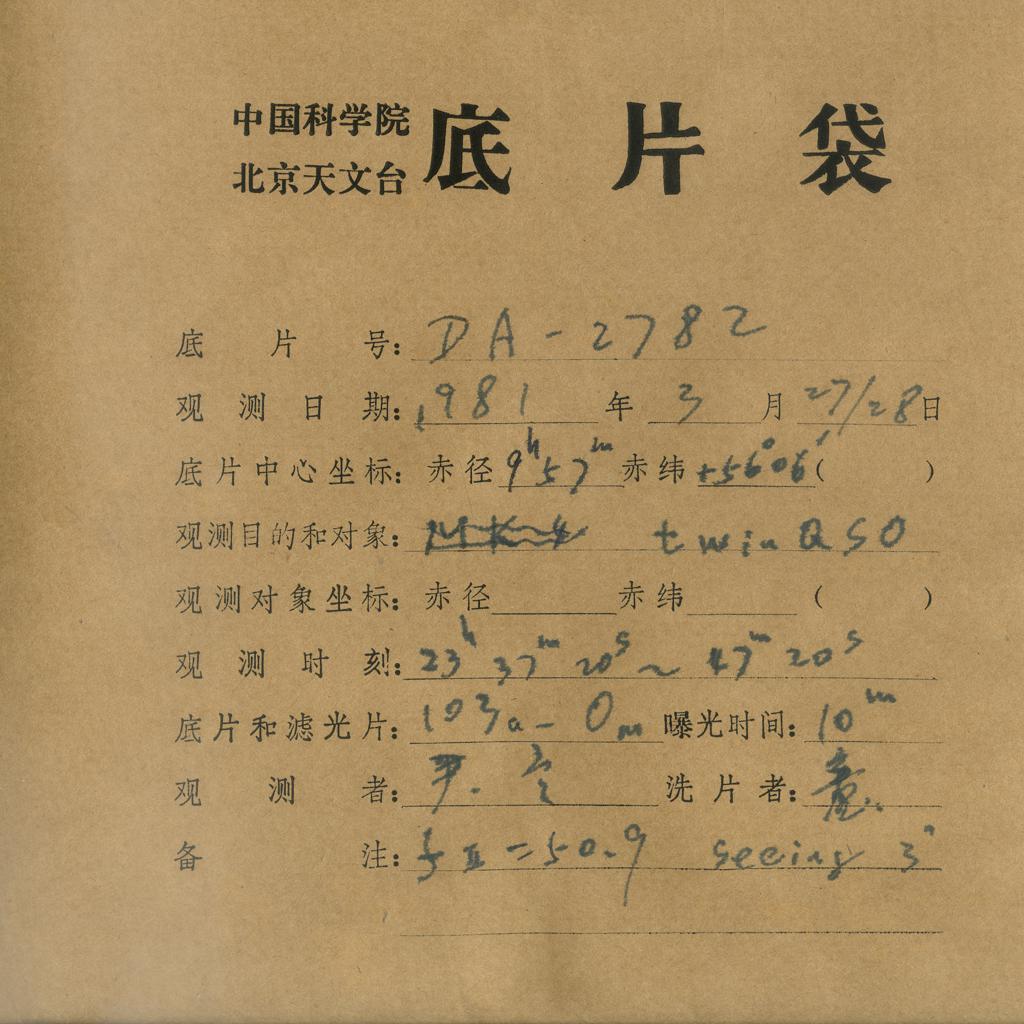 中国科学院
北京天文台
底片袋
底片号: DA-2782
观测日期: 1981年3月27/28日
底片中心坐标: 赤径9h57m赤纬+56°06′( )
观测目的和对象: twin QSO
观测对象坐标: 赤径 赤纬 ( )
观测时刻: 23h 37m 20s ~ 47m 20s
底片和滤光片: 103a-O 曝光时间: 10m
观测者: 洗片者: 童
备注: =50.9 seeing 3"